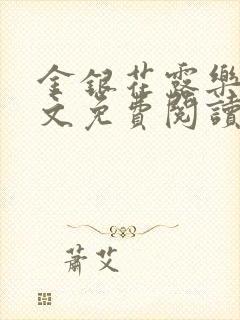 金銀花露樂
文免費閱讀
蕭艾